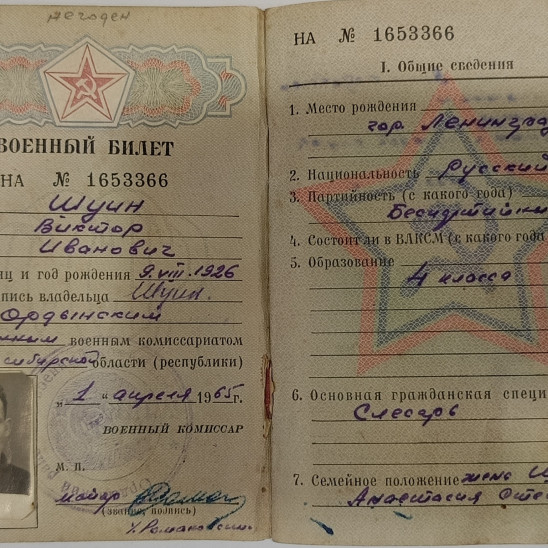 негоден
ВОЕННЫЙ БИЛЕТ
НА № 1653366
Шуин
Виктор
Иванович
яц и год рождения 9.VIII.1926
пись владельца Шуин.
Ордынским
ским военным комиссариатом
сибирской области (республики)
"1" апреля 1965 г.
ВОЕННЫЙ КОМИССАР
М. П.
майор
(звание, подпись)
НА № 1653366
I. Общие сведения
1. Место рождения
гор. Ленинград
2. Национальность Русский
3. Партийность (с какого года)
Беспартийный
4. Состоит ли в ВЛКСМ (с какого года
5. Образование
4 класса
6. Основная гражданская специ
Слесарь
7. Семейное положение жена Ш
Анастасия Степ